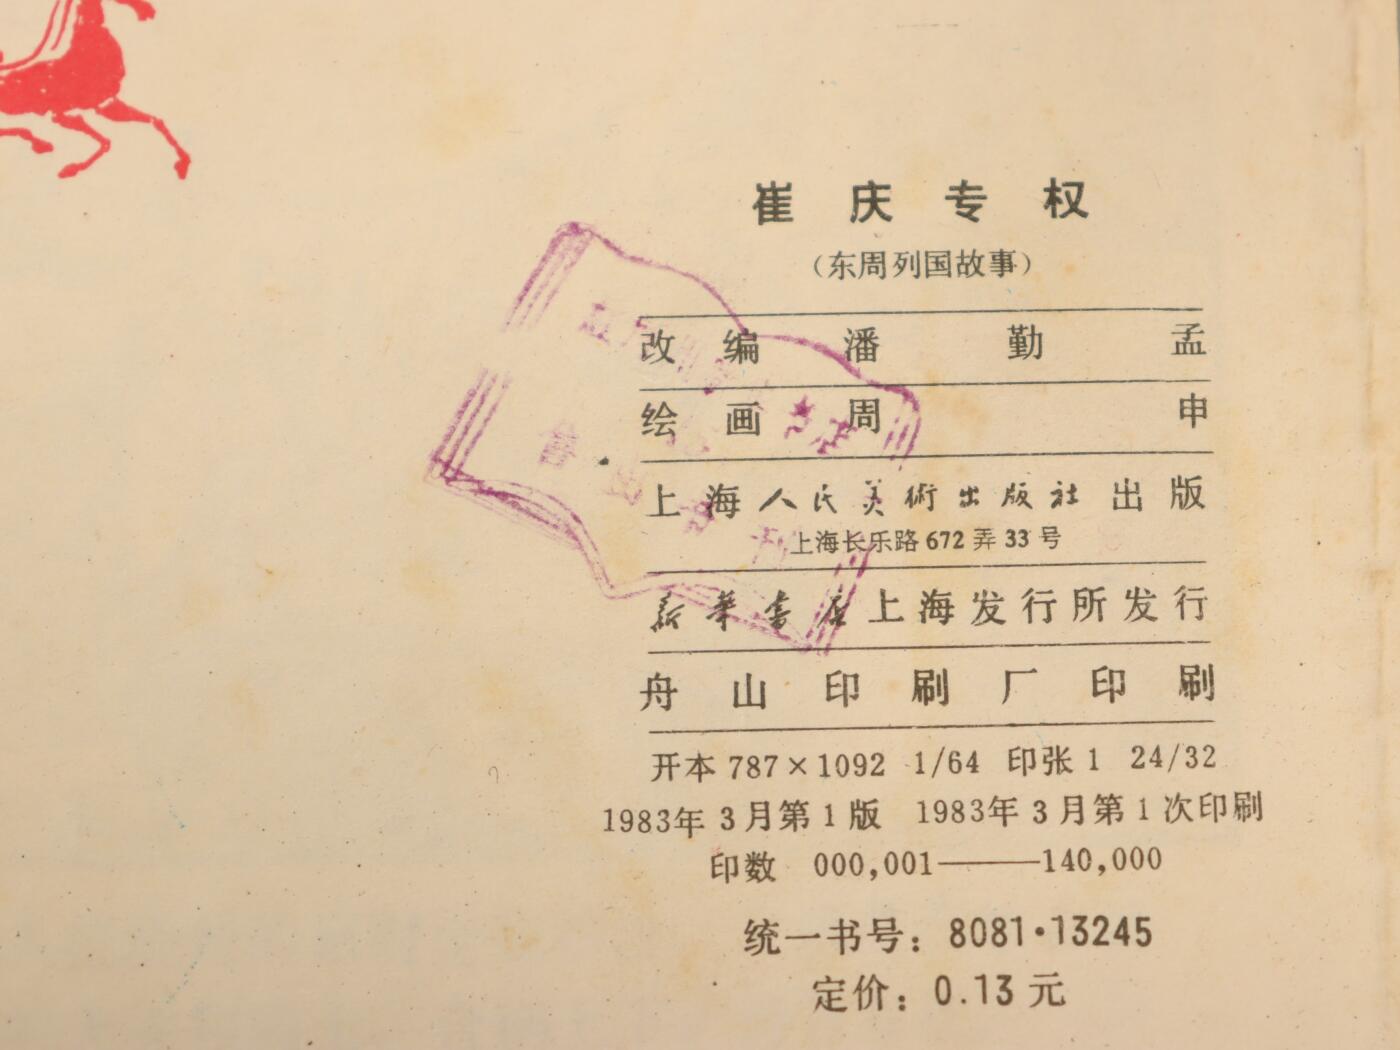 崔庆专权
（东周列国故事）
改编 潘勤孟
绘画 周申
上海人民美術出版社出版
上海长乐路672弄33号
新华書店上海发行所发行
舟山印刷厂印刷
开本 787×1092 1/64 印张 1 24/32
1983年3月第1版 1983年3月第1次印刷
印数 000,001——140,000
统一书号：8081·13245
定价：0.13元